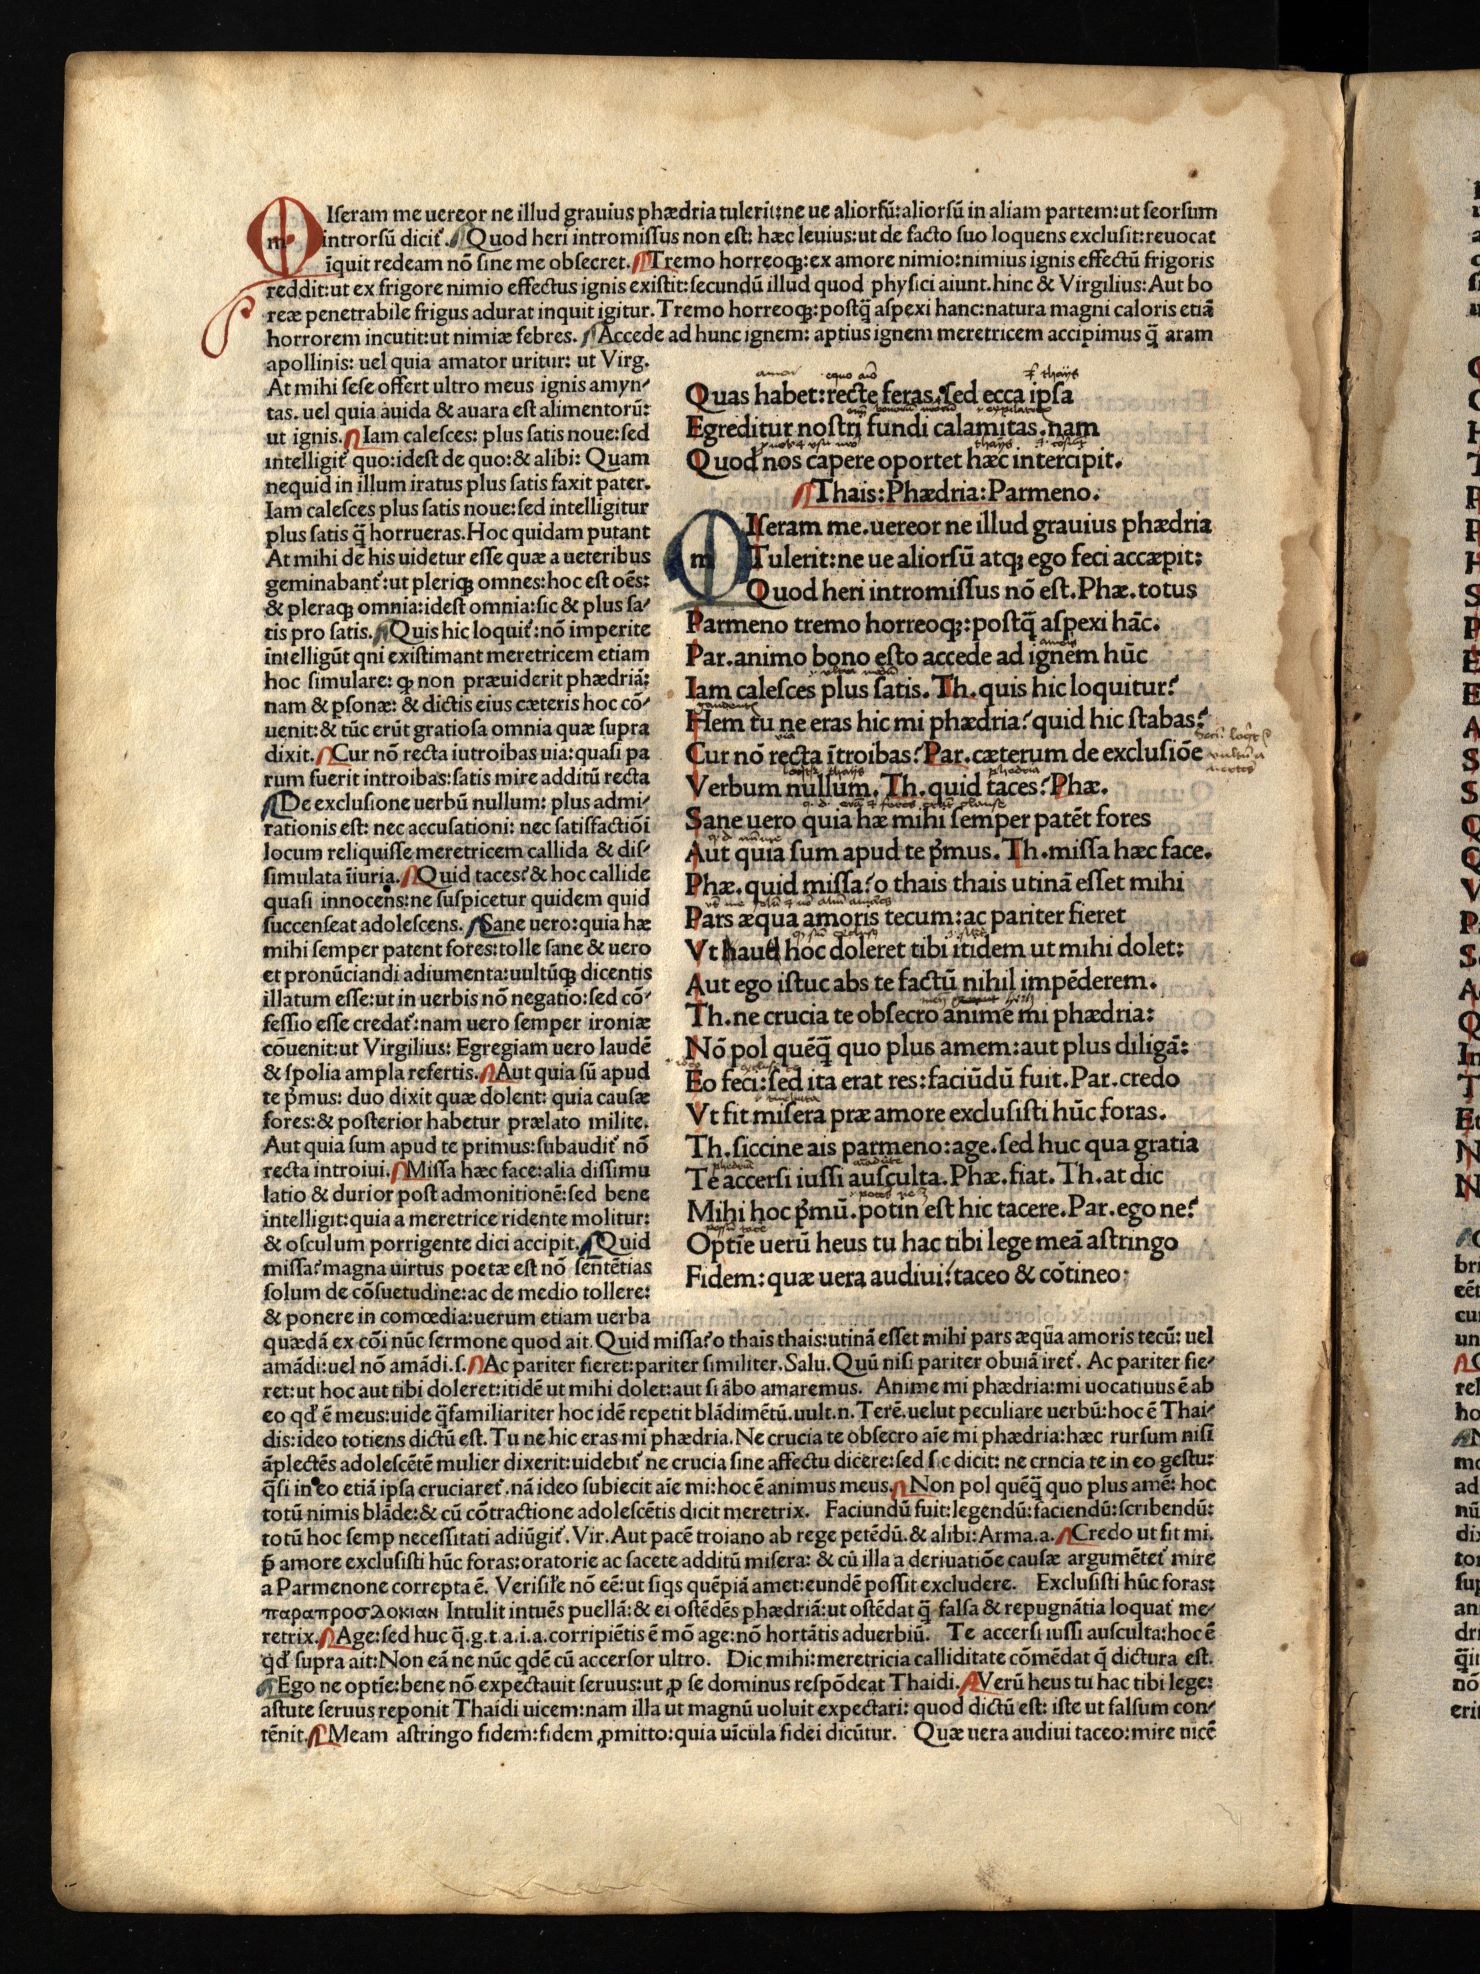 mIseram me uereor ne illud grauius phædria tulerit:ne ue aliorsū:aliorsū in aliam partem:ut seorsum
introrsū dicit̃. Quod heri intromissus non est: hæc leuius:ut de facto suo loquens exclusit:reuocat
īquit redeam nō sine me obsecret. Tremo horreoqꝫ:ex amore nimio:nimius ignis effectū frigoris
reddit:ut ex frigore nimio effectus ignis existit:secundū illud quod physici aiunt.hinc & Virgilius:Aut bo
reæ penetrabile frigus adurat inquit igitur.Tremo horreoqꝫ:postq̄ aspexi hanc:natura magni caloris etiā
horrorem incutit:ut nimiæ febres. Accede ad hunc ignem: aptius ignem meretricem accipimus q̄ aram
apollinis: uel quia amator uritur: ut Virg.
At mihi sese offert ultro meus ignis amyn-
tas. uel quia auida & auara est alimentorū:
ut ignis. Iam calesces: plus satis noue:sed
intelligit̃ quo:idest de quo:& alibi: Quam
nequid in illum iratus plus satis faxit pater.
Iam calesces plus satis noue:sed intelligitur
plus satis q̄ horrueras.Hoc quidam putant
At mihi de his uidetur esse quæ a ueteribus
geminabant̃:ut pleriqꝫ omnes:hoc est oēs:
& pleraqꝫ omnia:idest omnia:sic & plus sa-
tis pro satis. Quis hic loquit̃:nō imperite
intelligūt qni existimant meretricem etiam
hoc simulare: ꝙ non præuiderit phædriā:
nam & psonæ: & dictis eius cæteris hoc cō-
uenit:& tūc erūt gratiosa omnia quæ supra
dixit. Cur nō recta iutroibas uia:quasi pa
rum fuerit introibas:satis mire additū recta
De exclusione uerbū nullum: plus admi-
rationis est: nec accusationi: nec satisfactiōi
locum reliquisse meretricem callida & dis-
simulata īiuria. Quid taces? & hoc callide
quasi innocens:ne suspicetur quidem quid
succenseat adolescens. Sane uero:quia hæ
mihi semper patent fores:tolle sane & uero
et pronūciandi adiumenta:uultūqꝫ dicentis
illatum esse:ut in uerbis nō negatio:sed cō-
fessio esse credat̃:nam uero semper ironiæ
cōuenit:ut Virgilius: Egregiam uero laudē
& spolia ampla refertis. Aut quia sū apud
te p̄mus: duo dixit quæ dolent: quia causæ
fores:& posterior habetur prælato milite.
Aut quia sum apud te primus:subaudit̃ nō
recta introiui. Missa hæc face:alia dissimu
latio & durior post admonitionē:sed bene
intelligit:quia a meretrice ridente molitur:
& osculum porrigente dici accipit. Quid
missa?magna uirtus poetæ est nō sentētias
solum de cōsuetudine:ac de medio tollere:
& ponere in comœdia:uerum etiam uerba
Quas habet:recte feras.sed ecca ipsa
Egreditur nostri fundi calamitas.nam
Quod nos capere oportet hæc intercipit.
Thais:Phædria:Parmeno.
mIseram me.uereor ne illud grauius phædria
Tulerit:ne ue aliorsū atqꝫ ego feci accæpit:
Quod heri intromissus nō est.Phæ.totus
Parmeno tremo horreoqꝫ:postq̄ aspexi hāc.
Par.animo bono esto accede ad ignem hūc
Iam calesces plus satis.Th.quis hic loquitur?
Hem tu ne eras hic mi phædria?quid hic stabas?
Cur nō recta ītroibas?Par.cæterum de exclusiōe
Verbum nullum.Th.quid taces?Phæ.
Sane uero quia hæ mihi semper patēt fores
Aut quia sum apud te p̄mus.Th.missa hæc face.
Phæ.quid missa?o thais thais utinā esset mihi
Pars æqua amoris tecum:ac pariter fieret
Vt haud hoc doleret tibi itidem ut mihi dolet:
Aut ego istuc abs te factū nihil impēderem.
Th.ne crucia te obsecro anime mi phædria:
Nō pol quēq̄ quo plus amem:aut plus diligā:
Eo feci:sed ita erat res:faciūdū fuit.Par.credo
Vt fit misera præ amore exclusisti hūc foras.
Th.siccine ais parmeno:age.sed huc qua gratia
Te accersi iussi ausculta.Phæ.fiat.Th.at dic
Mihi hoc p̄mū.potin est hic tacere.Par.ego ne?
Optīe uerū heus tu hac tibi lege meā astringo
Fidem:quæ uera audiui:taceo & cōtineo:
quædā ex cōi nūc sermone quod ait.Quid missa?o thais thais:utinā esset mihi pars æqūa amoris tecū: uel
amādi:uel nō amādi.s. Ac pariter fieret:pariter similiter.Salu.Quū nisi pariter obuiā iret̃. Ac pariter fie-
ret:ut hoc aut tibi doleret:itidē ut mihi dolet:aut si ābo amaremus. Anime mi phædria:mi uocatiuus ē ab
eo qđ ē meus:uide q̄familiariter hoc idē repetit blādimētū.uult.n.Terē.uelut peculiare uerbū:hoc ē Thai-
dis:ideo totiens dictū est.Tu ne hic eras mi phædria.Ne crucia te obsecro aīe mi phædria:hæc rursum nisi
āplectēs adolescētē mulier dixerit:uidebit̃ ne crucia sine affectu dicere:sed sic dicit: ne crncia te in eo gestu:
q̄si in eo etiā ipsa cruciaret̃.nā ideo subiecit aīe mi:hoc ē animus meus. Non pol quēq̄ quo plus amē: hoc
totū nimis blāde:& cū cōtractione adolescētis dicit meretrix. Faciundū fuit:legendū:faciendū:scribendū:
totū hoc semp necessitati adiūgit̃.Vir.Aut pacē troiano ab rege petēdū.& alibi:Arma.a. Credo ut fit mi.
p̄ amore exclusisti hūc foras:oratorie ac facete additū misera: & cū illa a deriuatiōe causæ argumētet̃ mire
a Parmenone correpta ē. Verisiłe nō eē:ut siqs quēpiā amet:eundē possit excludere. Exclusisti hūc foras:
παραπροσΔοκιαν Intulit intuēs puellā:& ei ostēdēs phædriā:ut ostēdat q̄ falsa & repugnātia loquat̃ me-
retrix. Age:sed huc q̄.g.t.a.i.a.corripiētis ē mō age:nō hortātis aduerbiū. Te accersi iussi ausculta:hoc ē
qđ supra ait:Non eā ne nūc qdē cū accersor ultro. Dic mihi:meretricia calliditate cōmēdat q̄ dictura est.
Ego ne optīe:bene nō expectauit seruus:ut ꝓ se dominus respōdeat Thaidi. Verū heus tu hac tibi lege:
astute seruus reponit Thaidi uicem:nam illa ut magnū uoluit expectari: quod dictū est: iste ut falsum con-
tēnit. Meam astringo fidem:fidem ꝓmitto:quia uīcula fidei dicūtur. Quæ uera audiui taceo:mire nicē